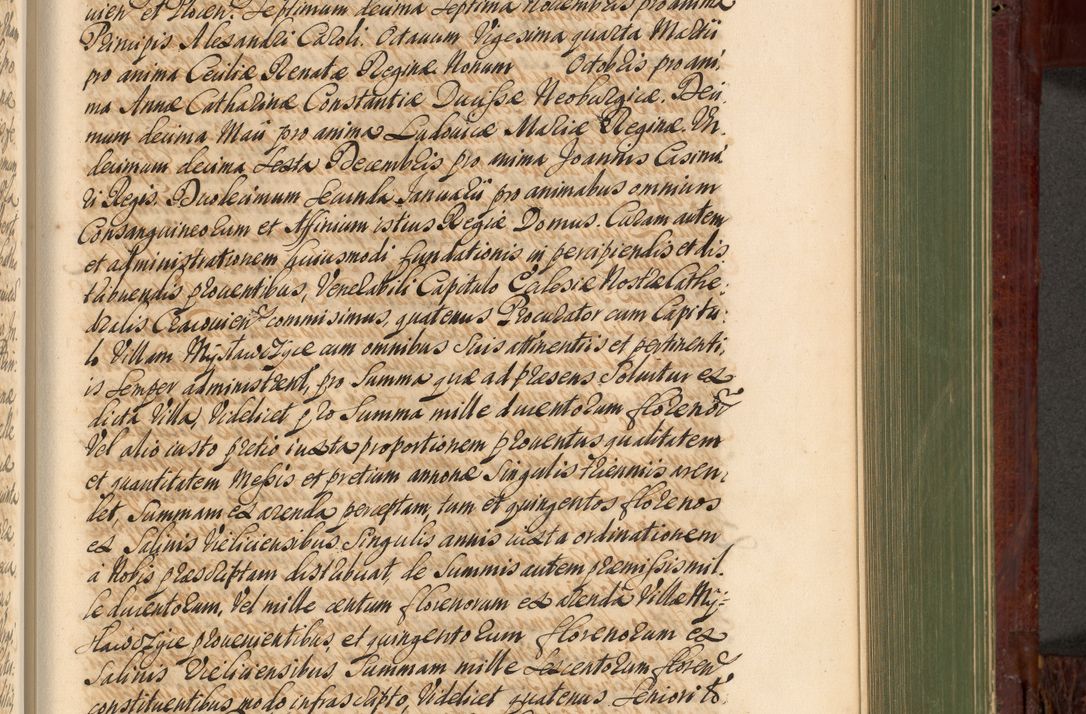 vien et Floren. Septimum decima Septima Novembris pro anima
Principis Alexandri Caroli. Octavum Vigesima quarta Martii
pro anima Ceciliæ Renatæ Reginæ Nonum Octobris pro ani,
ma Annæ Catharinæ Constantiæ Ducissæ Neoburgicæ. Deci,
mum decima Maii pro anima Ludovicæ Mariæ Reginæ. Un,
decimum decima Sexta Decembris pro anima Joannis Casimi,
ri Regis. Duodecimum Secunda Januarii pro animabus omnium
Consanguineorum et Affinium istius Regiæ Domus. Curam autem
et administrationem huiusmodi fundationis in percipiendis et dis,
tribuendis proventibus, Venerabili Capitulo Ecclesiæ Nostræ Cathe,
dralis Cracovien commisimus, quatenus Procurator cum Capitu,
lo Villam Mysławczyce cum omnibus Suis attinentiis et pertinenti,
is Semper administrent, pro Summa quæ ad præsens Solvitur ex
dicta Villa, Videlicet pro Summa mille ducentorum floreno
Vel alio iusto pretio iuxta proportionem proventus qualitatem
et quantitatem Messis et pretium annonæ Singulis trienniis aren,
det, Summam ex arenda perceptam, tum et quingentos florenos
ex Salinis Vieliciensibus Singulis annis iuxta ordinationem
a Nobis præscriptam distribuat, de Summis autem præmissis mil,
le ducentorum, Vel mille centum florenorum ex arenda Villæ My,
sławczyce provenientibus, et quingentorum florenorum ex
Salinis Vieliciensibus, Summam mille Sexcentorum floren
constituentibus modo infrascripto, Videlicet quatenus Seniori